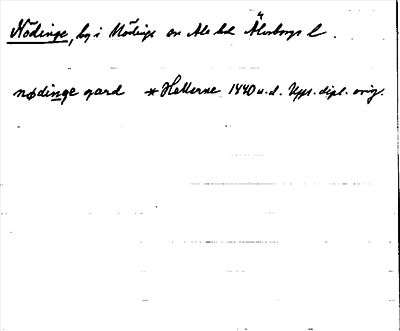 Nödinge, by i Nödinge sn Ale hd Älvsborgs l.
nødinge gard * Hallerne 1440 u.d. Ups. dipl. orig.